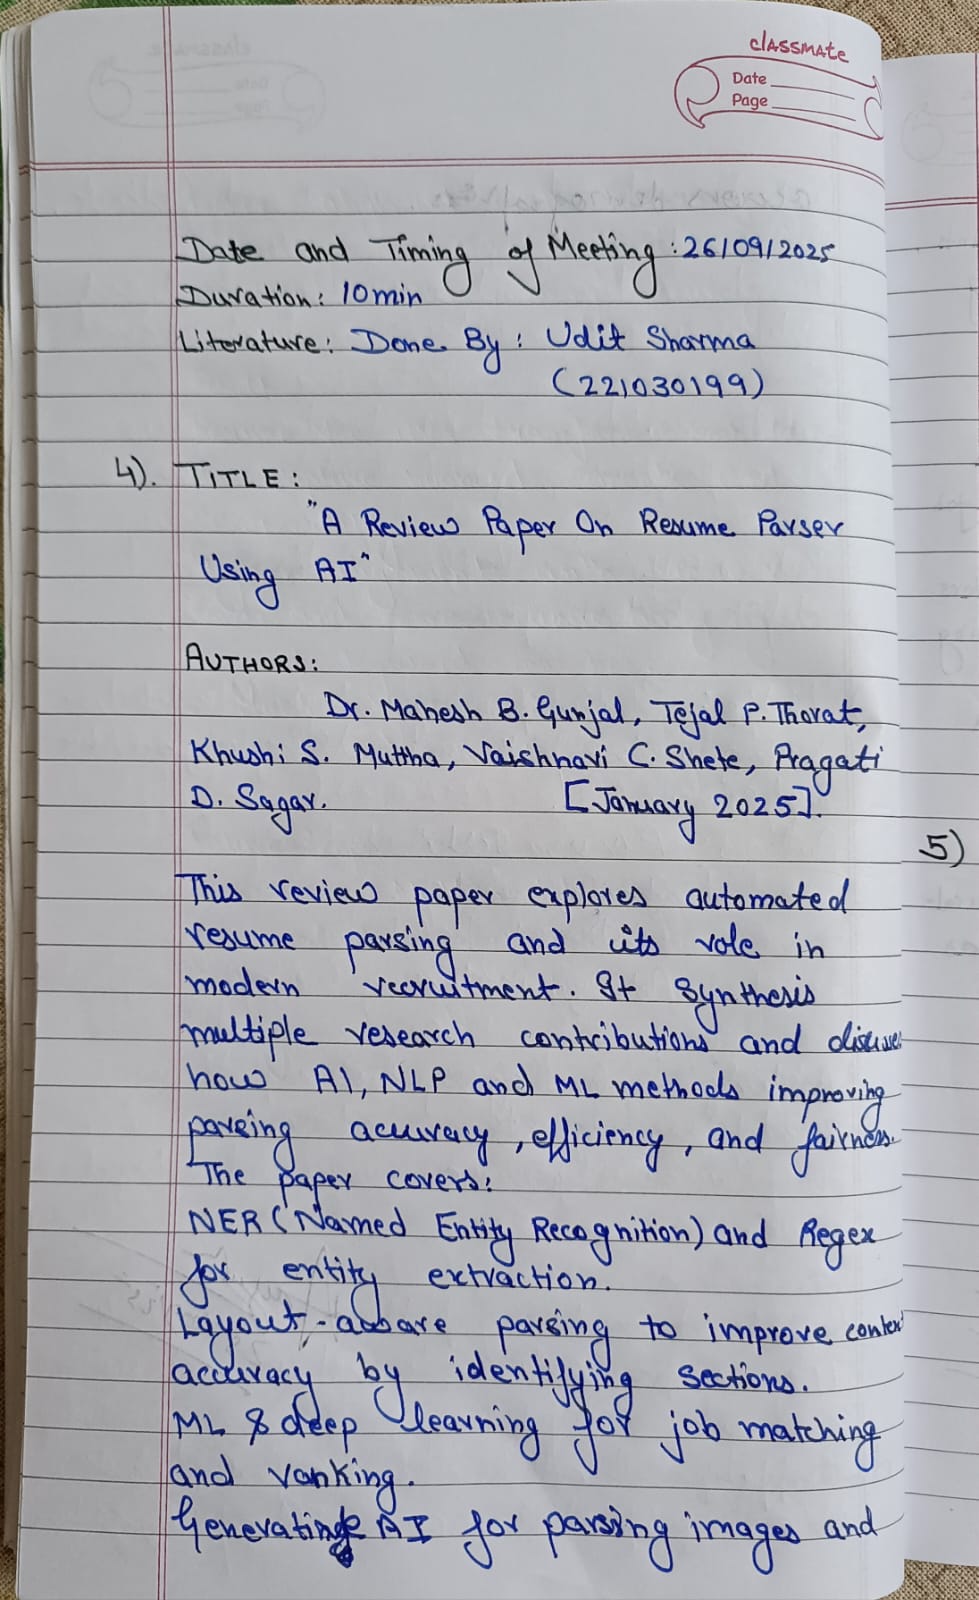 classmate
Date
Page
Date and Timing of Meeting: 26/09/2025
Duration: 10min
Literature: Done By: Udit Sharma
(221030199)
4). TITLE:
"A Review Paper On Resume Parser
Using AI"
AUTHORS:
Dr. Mahesh B. Gunjal, Tejal P. Thorat,
Khushi S. Muttha, Vaishnavi C. Shete, Pragati
D. Sagar. [January 2025].
5)
This review paper explores automated
resume parsing and its role in
modern recruitment. It Synthesis
multiple research contributions and
how AI, NLP and ML methods improving
parsing accuracy, efficiency, and fairness.
The paper covers:
NER (Named Entity Recognition) and Regex
for entity extraction.
Layout-aware parsing to improve
accuracy by identifying sections.
ML & deep learning for job matching
and ranking.
AI for parsing images and